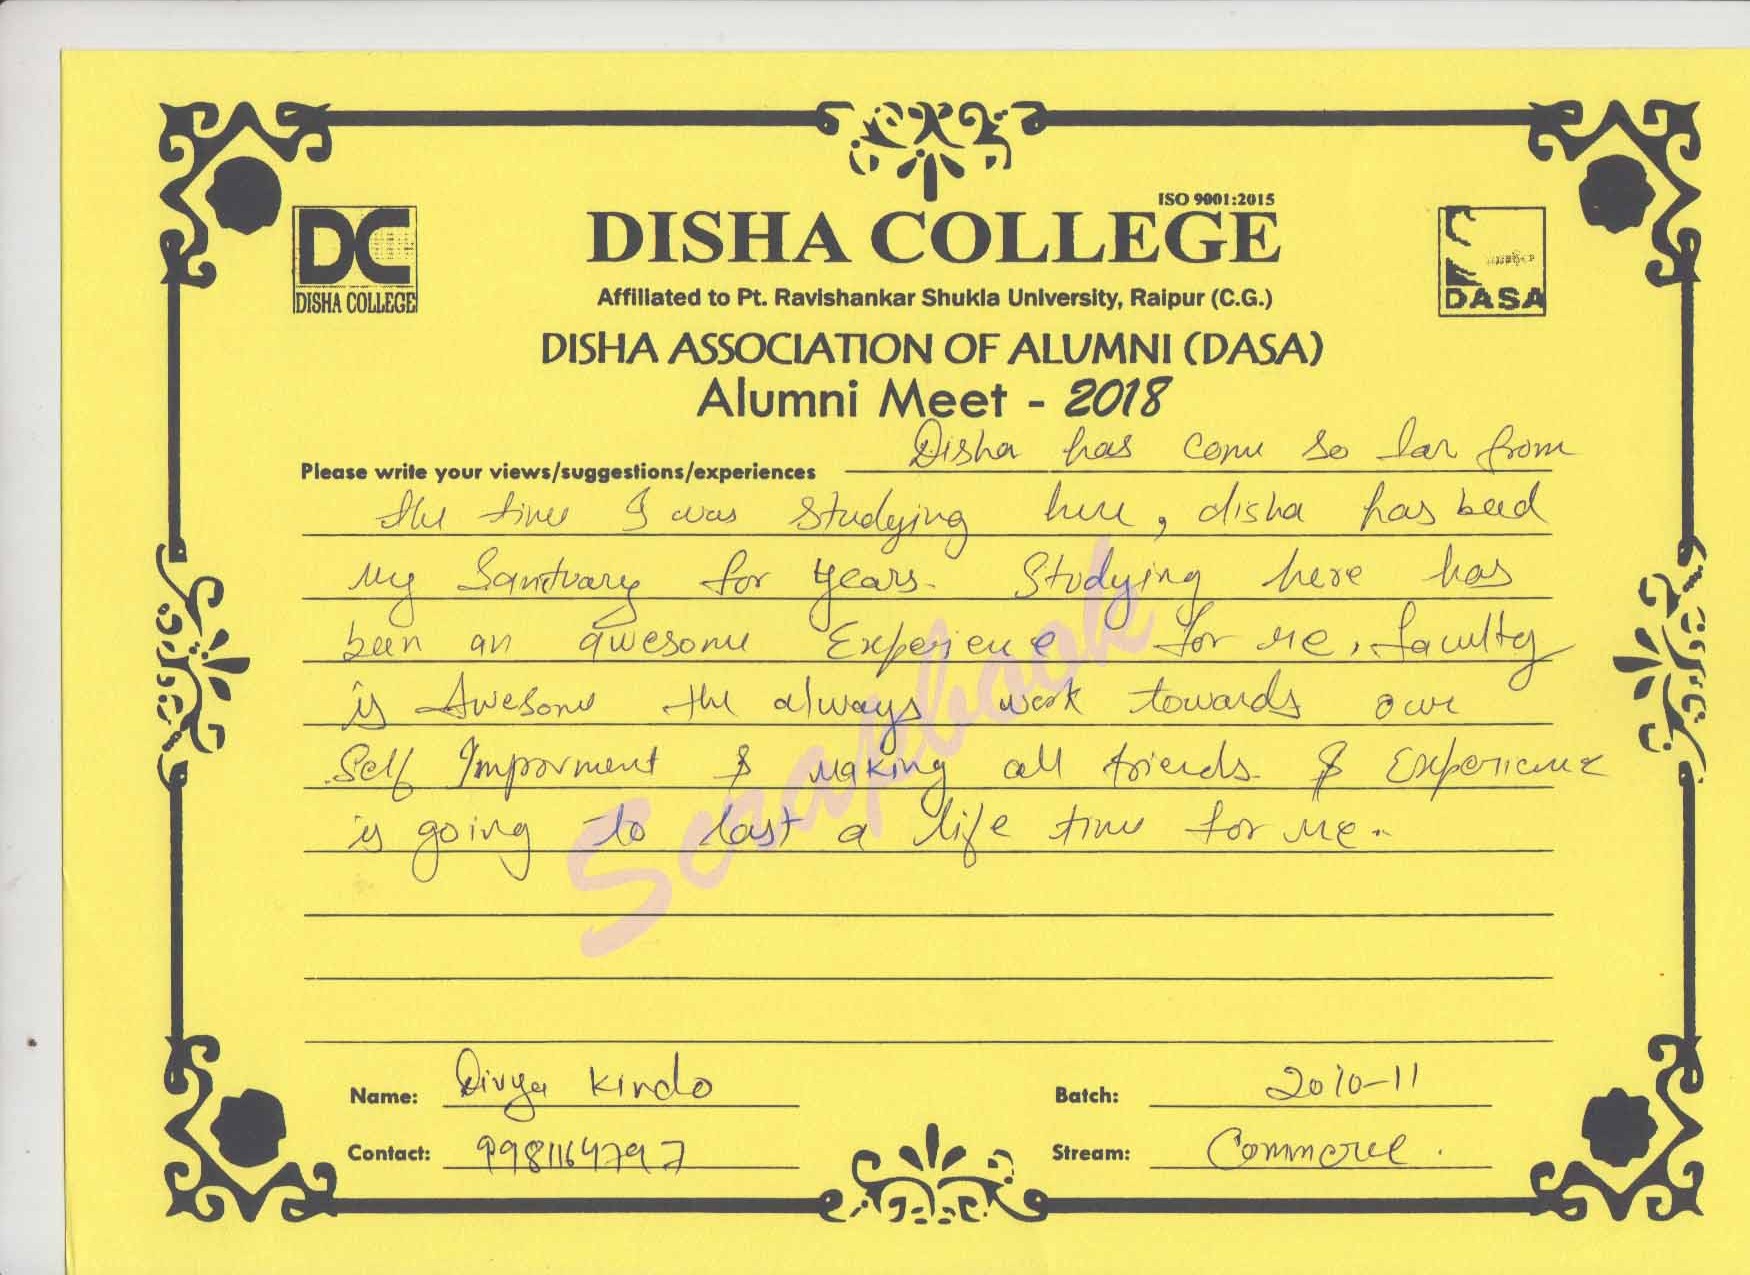 ISO 9001:2015
DC
DISHA COLLEGE
DISHA COLLEGE
DASA
Affiliated to Pt. Ravishankar Shukla University, Raipur (C.G.)
DISHA ASSOCIATION OF ALUMNI (DASA)
Alumni Meet - 2018
Please write your views/suggestions/experiences Disha has come so far from
the time I was studying here, disha has beed
my Sanctuary for years. Studying here has
been an awesome Experience for me, faculty
is Awesome the always work towards our
Self Imporvment & making all friends & Experience
is going to last a life time for me.
Scrapbook
Name: Divya Kindo
Batch: 2010-11
Contact: 9981164797
Stream: Commerce.